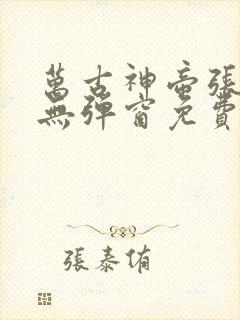 萬古神帝張
無彈窗免費
張泰侑